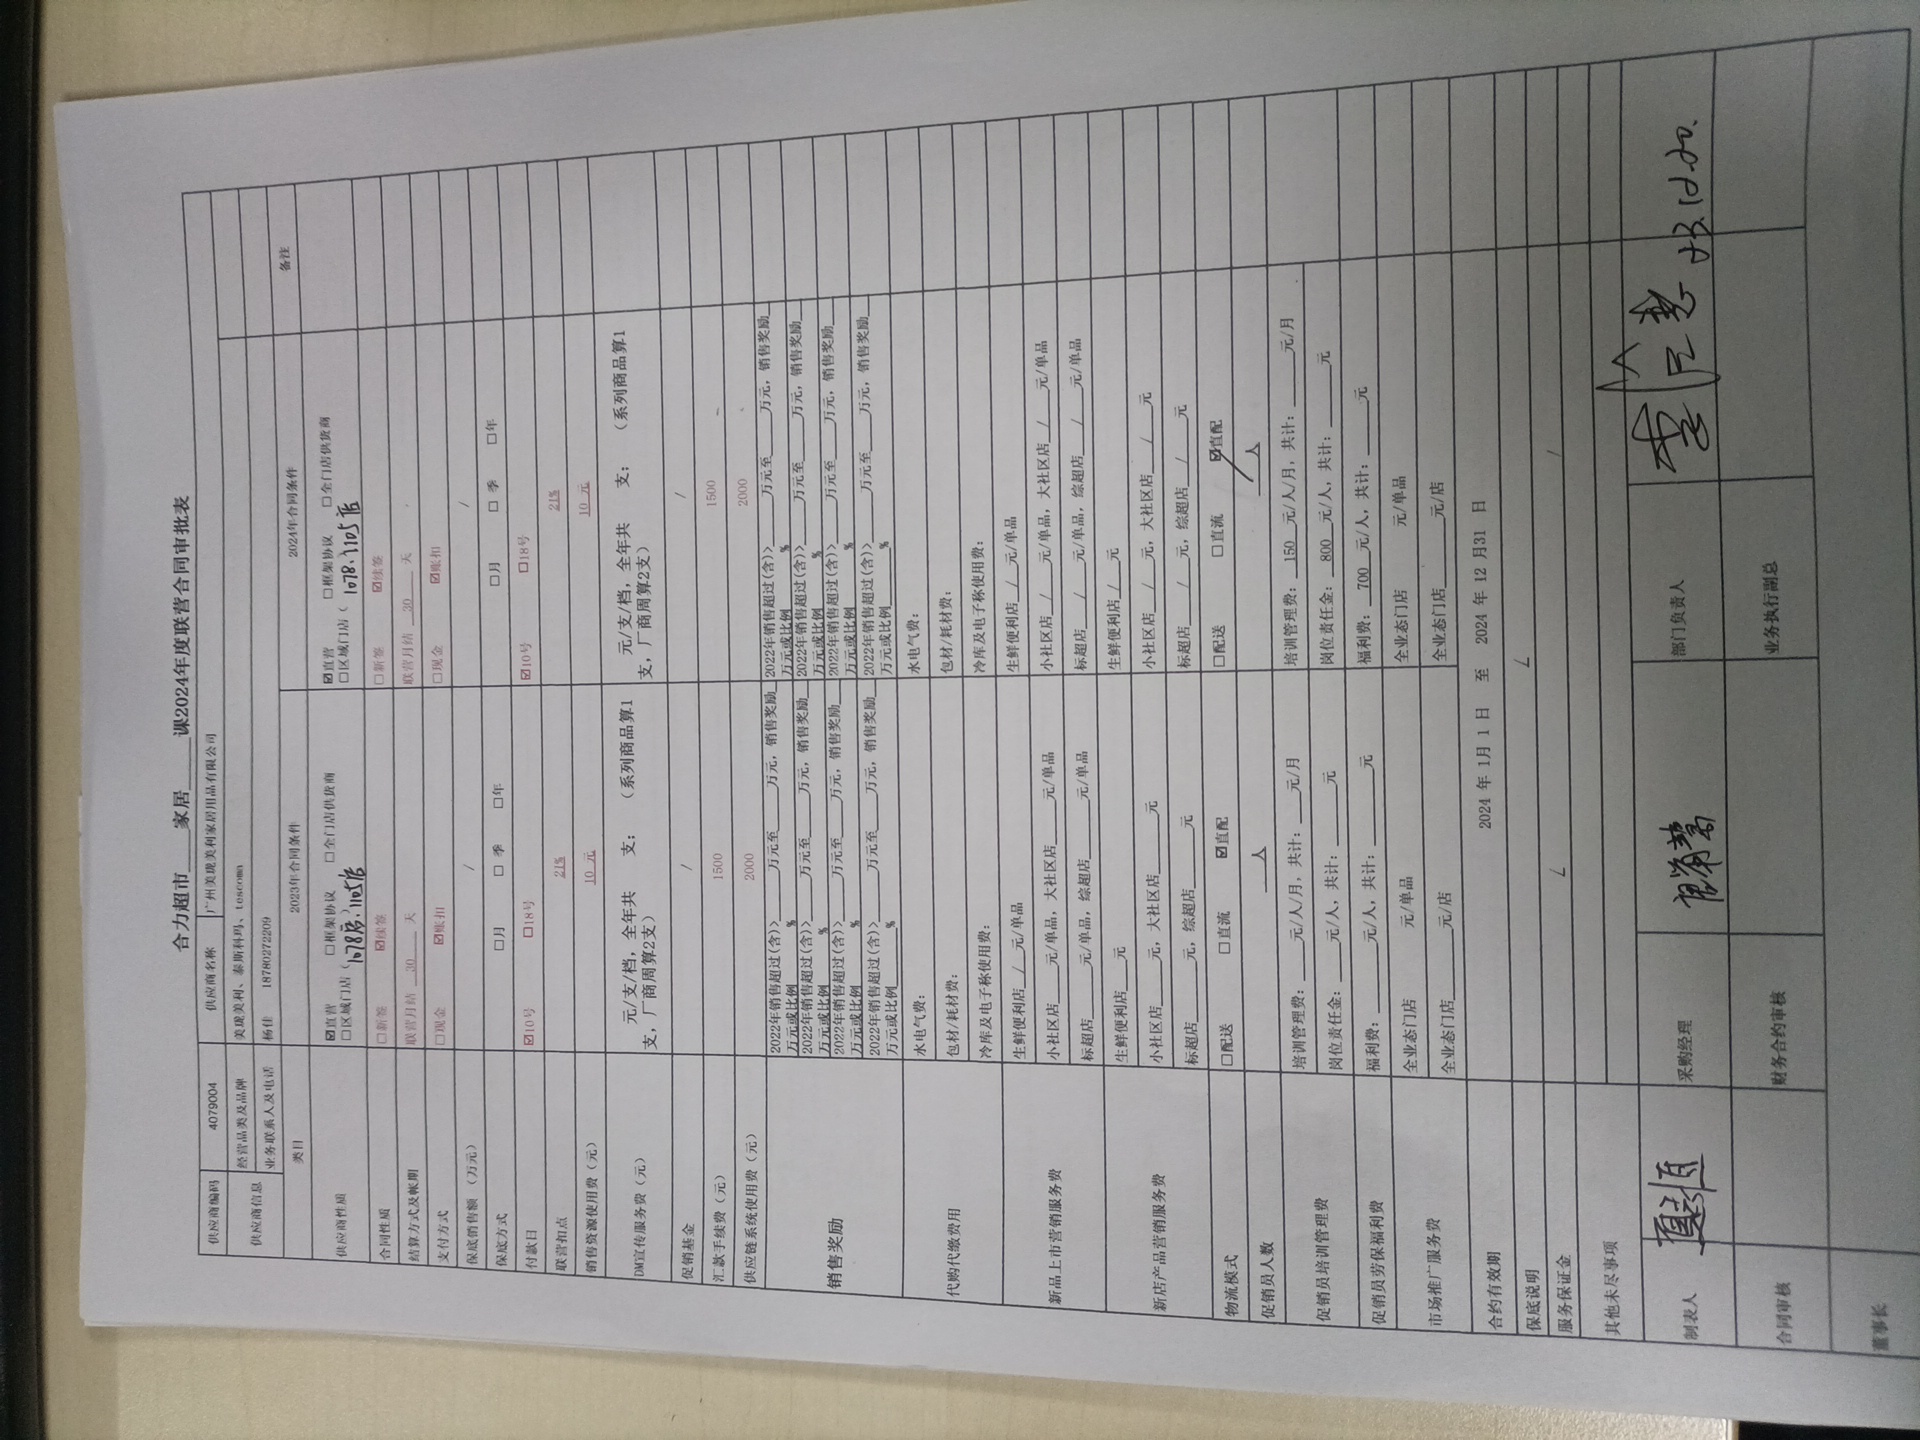 合力超市 家居 课2024年度联营合同审批表
供应商编码 4079004 供应商名称 广州美珑美利家居用品有限公司
供应商信息 经营品类及品牌 美珑美利、泰斯科玛、tescoma
业务联系人及电话 杨佳 18780272209
类目 2023年合同条件 2024年合同条件 备注
供应商性质 ☑直营 □框架协议 □全门店供货商 ☑直营 □框架协议 □全门店供货商
□区域门店（1078店、1105店 □区域门店（1078、1105店
合同性质 □新签 ☑续签 □新签 ☑续签
结算方式及帐期 联营月结 30 天 联营月结 30 天
支付方式 □现金 ☑账扣 □现金 ☑账扣
保底销售额（万元） / /
保底方式 □月 □季 □年 □月 □季 □年
付款日 ☑10号 □18号 ☑10号 □18号
联营扣点 21% 21%
销售资源使用费（元） 10 元 10 元
DM宣传服务费（元） 元/支/档，全年共 支；（系列商品算1 元/支/档，全年共 支；（系列商品算1
支，厂商周算2支） 支，厂商周算2支）
促销基金 / /
汇款手续费（元） 1500 1500
供应链系统使用费（元） 2000 2000
销售奖励 2022年销售超过(含)>____万元至____万元，销售奖励 2022年销售超过(含)>____万元至____万元，销售奖励
万元或比例____% 万元或比例____%
2022年销售超过(含)>____万元至____万元，销售奖励 2022年销售超过(含)>____万元至____万元，销售奖励
万元或比例____% 万元或比例____%
2022年销售超过(含)>____万元至____万元，销售奖励 2022年销售超过(含)>____万元至____万元，销售奖励
万元或比例____% 万元或比例____%
2022年销售超过(含)>____万元至____万元，销售奖励 2022年销售超过(含)>____万元至____万元，销售奖励
万元或比例____% 万元或比例____%
代购代缴费用 水电气费： 水电气费：
包材/耗材费： 包材/耗材费：
冷库及电子称使用费： 冷库及电子称使用费：
新品上市营销服务费 生鲜便利店__/__元/单品 生鲜便利店__/__元/单品
小社区店____元/单品，大社区店____元/单品 小社区店__/__元/单品，大社区店__/__元/单品
标超店____元/单品，综超店____元/单品 标超店__/__元/单品，综超店__/__元/单品
新店产品营销服务费 生鲜便利店____元 生鲜便利店__/__元
小社区店____元，大社区店____元 小社区店__/__元，大社区店__/__元
标超店____元，综超店____元 标超店__/__元，综超店__/__元
物流模式 □配送 □直流 ☑直配 □配送 □直流 ☑直配
促销员人数 ____人 __/__人
促销员培训管理费 培训管理费：____元/人/月，共计：____元/月 培训管理费：150 元/人/月，共计：____元/月
岗位责任金：____元/人，共计：____元 岗位责任金：800 元/人，共计：____元
促销员劳保福利费 福利费：____元/人，共计：____元 福利费：700 元/人，共计：____元
市场推广服务费 全业态门店 元/单品 全业态门店 元/单品
全业态门店____元/店 全业态门店____元/店
合约有效期 2024 年 1月 1 日 至 2024 年 12 月31 日
保底说明 /
服务保证金 / /
其他未尽事项
制表人 采购经理 部门负责人 23.12.20.
合同审核 财务合约审核 业务执行副总
董事长